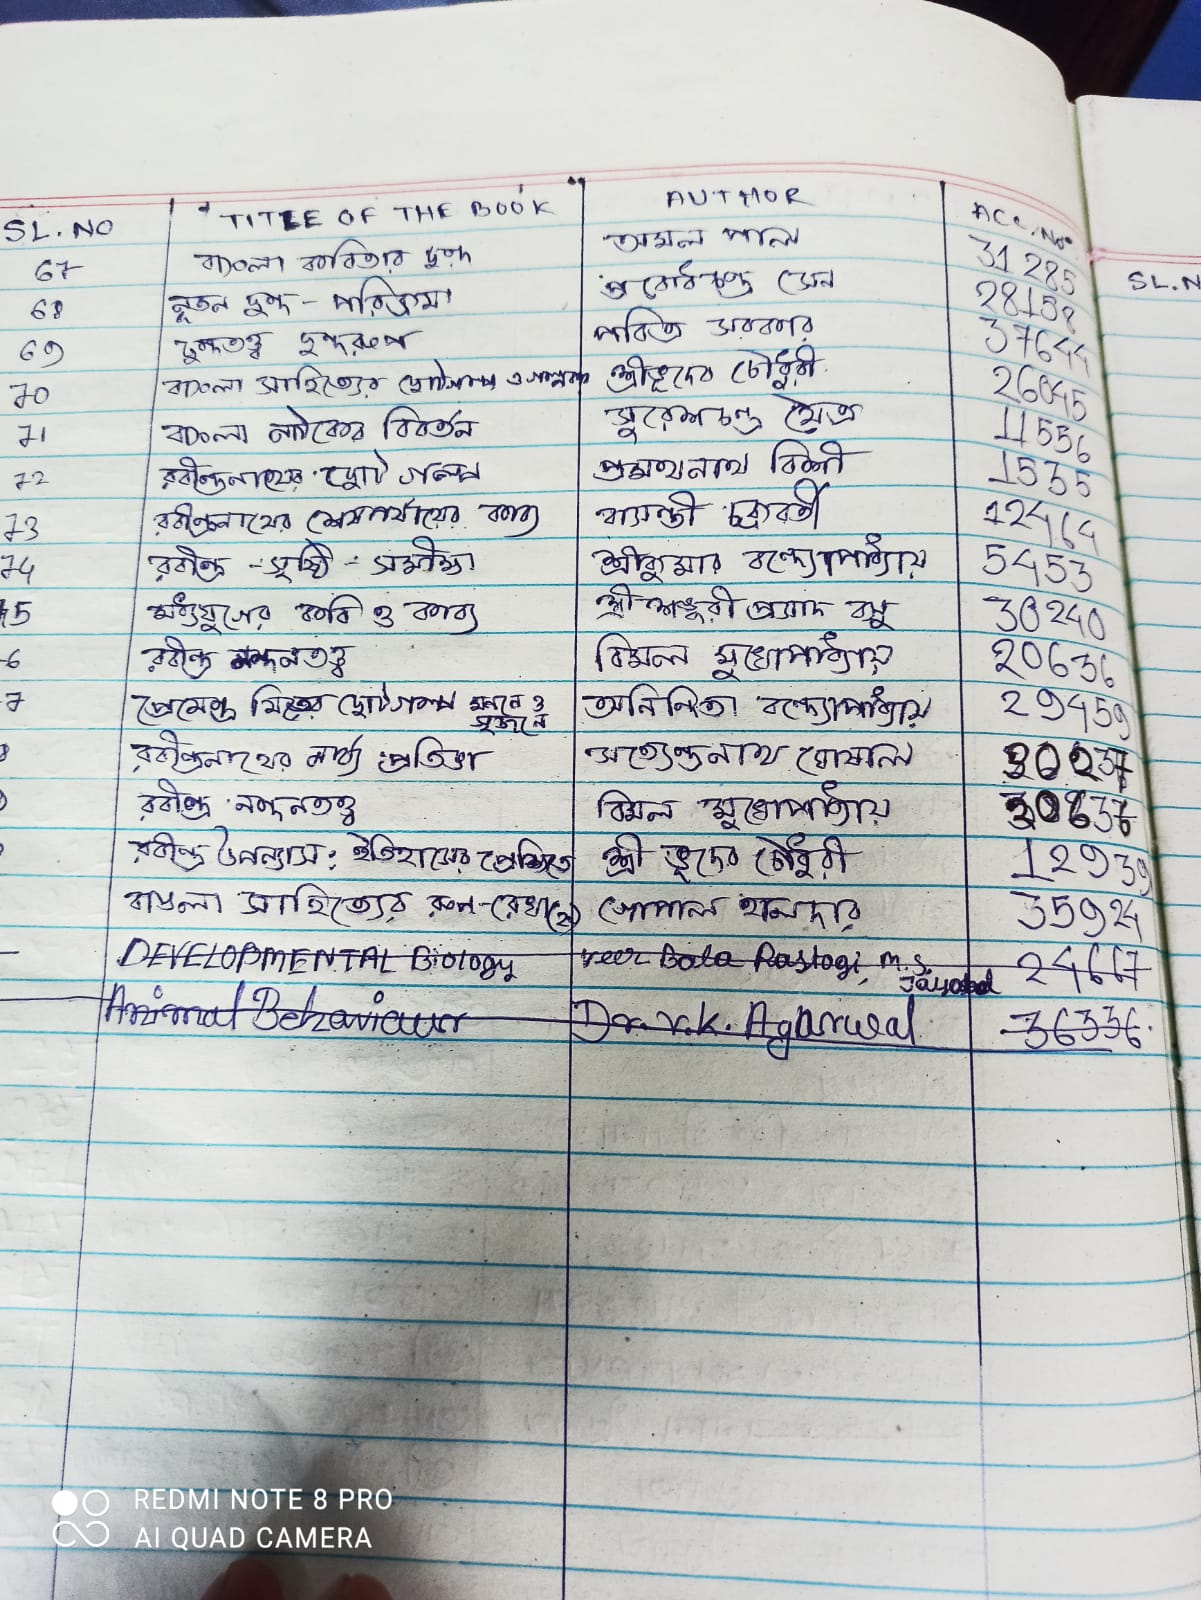 SL. NO TITLE OF THE BOOK AUTHOR ACC. No.
67 বাংলা কবিতার ছন্দ অমল পাল 31285
68 নূতন ছন্দ - পরিক্রমা প্রবোধচন্দ্র সেন 28158
69 ছন্দতত্ত্ব ছন্দরূপ পবিত্র সরকার 37644
70 বাংলা সাহিত্যের ছোটগল্প ও গল্পকার শ্রীভূদেব চৌধুরী 26045
71 বাংলা নাটকের বিবর্তন সুরেশচন্দ্র মৈত্র 11556
72 রবীন্দ্রনাথের ছোটগল্প প্রমথনাথ বিশী 1535
73 রবীন্দ্রনাথের শেষপর্যায়ের কাব্য বাসন্তী চক্রবর্তী 12464
74 রবীন্দ্র - সৃষ্টি - সমীক্ষা শ্রীকুমার বন্দ্যোপাধ্যায় 5453
5 মধ্যযুগের কবি ও কাব্য শ্রীশঙ্করী প্রসাদ বসু 30240
6 রবীন্দ্র নন্দনতত্ত্ব বিমল মুখোপাধ্যায় 20636
7 প্রেমেন্দ্র মিত্রের ছোটগল্প মননে ও সৃজনে অনিন্দিতা বন্দ্যোপাধ্যায় 29459
রবীন্দ্রনাথের নাট্য প্রতিভা সত্যেন্দ্রনাথ ঘোষাল
রবীন্দ্র নন্দনতত্ত্ব বিমল মুখোপাধ্যায়
রবীন্দ্র উপন্যাস: ইতিহাসের প্রেক্ষিতে শ্রী ভূদেব চৌধুরী 12939
বাঙলা সাহিত্যের রূপ-রেখা গোপাল হালদার 35924
DEVELOPMENTAL Biology Veer Bala Rastogi, M.S. Jaisabal 24667
Animal Behaviour Dr. V.K. Agarwal 36336
SL. N
REDMI NOTE 8 PRO
AI QUAD CAMERA